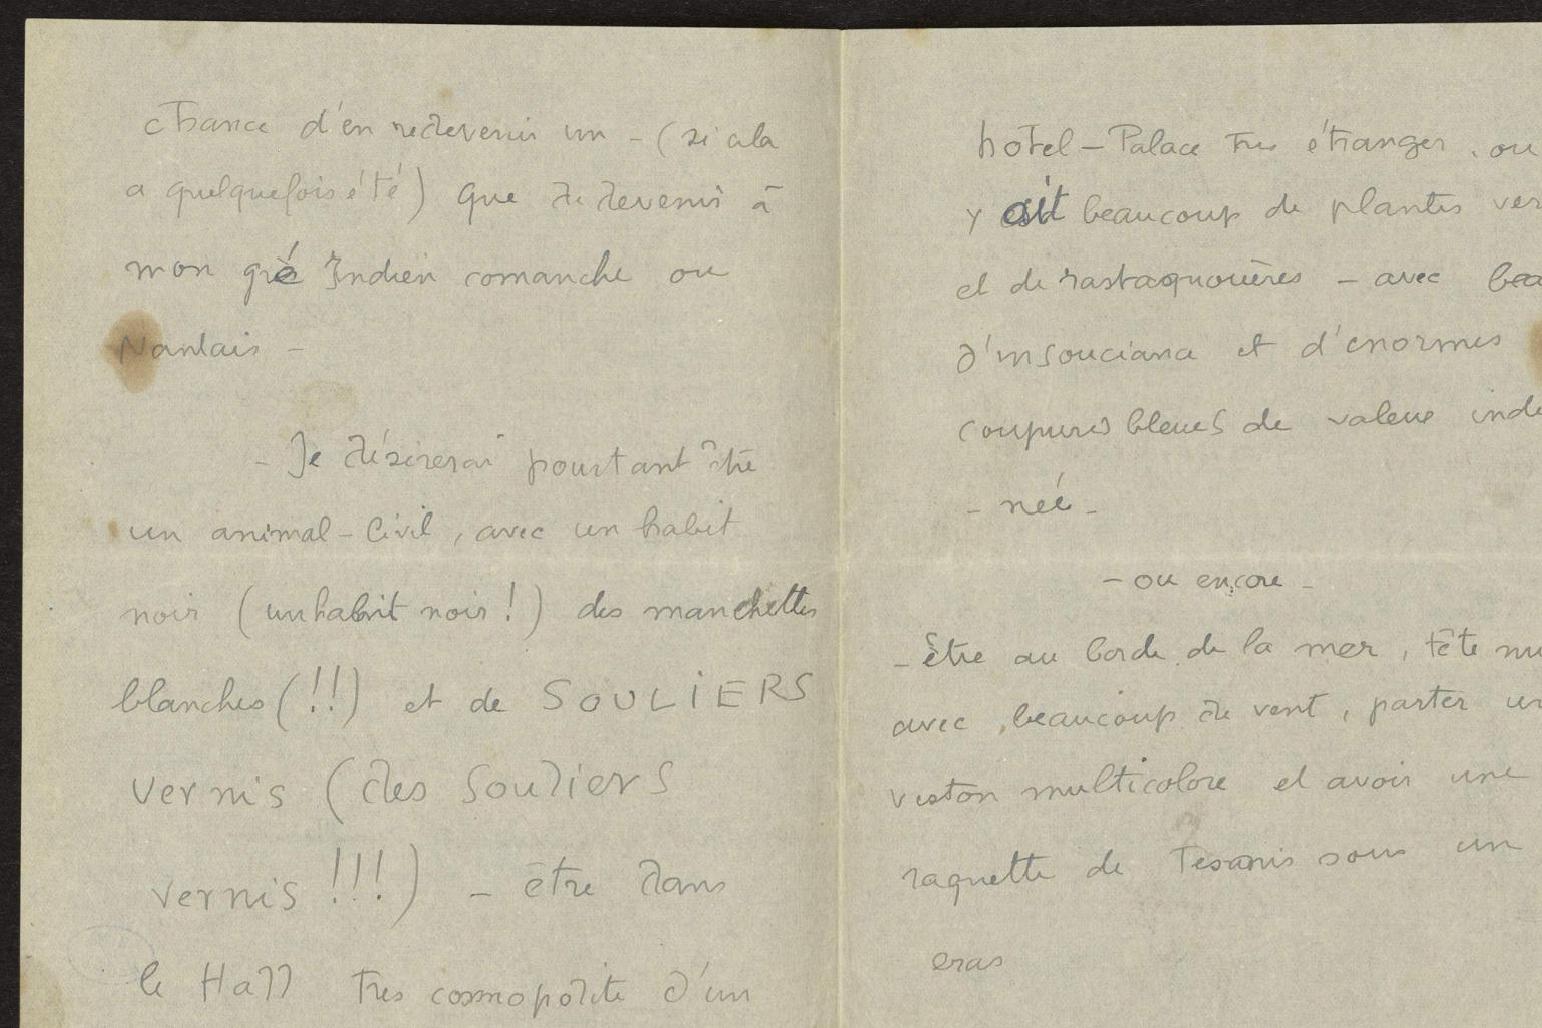 chance d'en redevenir un - (si cela
a quelquefois été) que de devenir à
mon gré Indien comanche ou
Nantais -
- Je désirerai pourtant être
un animal-Civil, avec un habit
noir (un habit noir !) des manchettes
blanches (!!) et de SOULIERS
vernis (des Souliers
vernis !!!) - être dans
le Hall très cosmopolite d'un
hotel - Palace très étranger, ou
y ait beaucoup de plantes ver
et de rastaquouères - avec bea
d'insouciance et d'enormes
coupures bleues de valeur inde
- née -
- ou encore -
- être au borde de la mer, tête nu
avec beaucoup de vent, porter un
veston multicolore et avoir une
raquette de sous un
eras